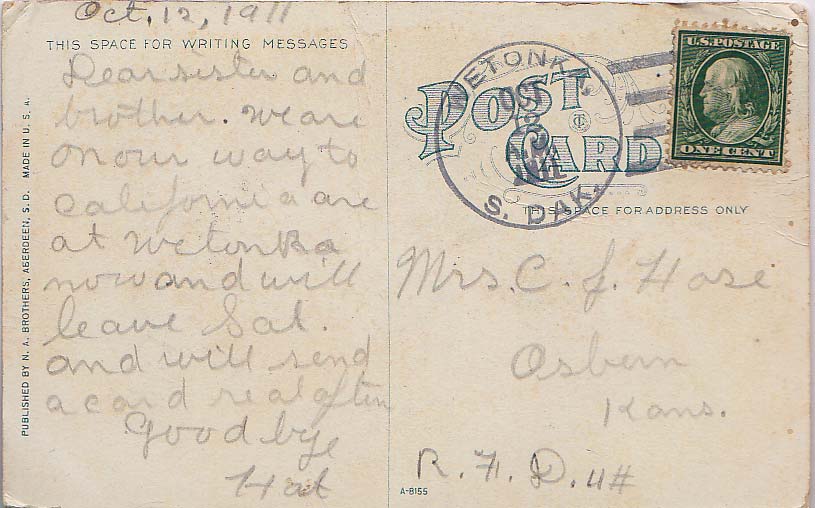 Oct. 12, 1911
THIS SPACE FOR WRITING MESSAGES
Dear sister and
brother. we are
on our way to
California are
at Wetonka
now and will
leave Sat.
and will send
a card real often
Good bye
Hat
PUBLISHED BY N. A. BROTHERS, ABERDEEN, S.D. MADE IN U. S. A.
POST CARD
WETONKA,
OCT
12
S. DAK.
U.S. POSTAGE
ONE CENT
THIS SPACE FOR ADDRESS ONLY
Mrs. C. J. Hose
Osborn
Kans.
R. F. D. 4#
A-8155